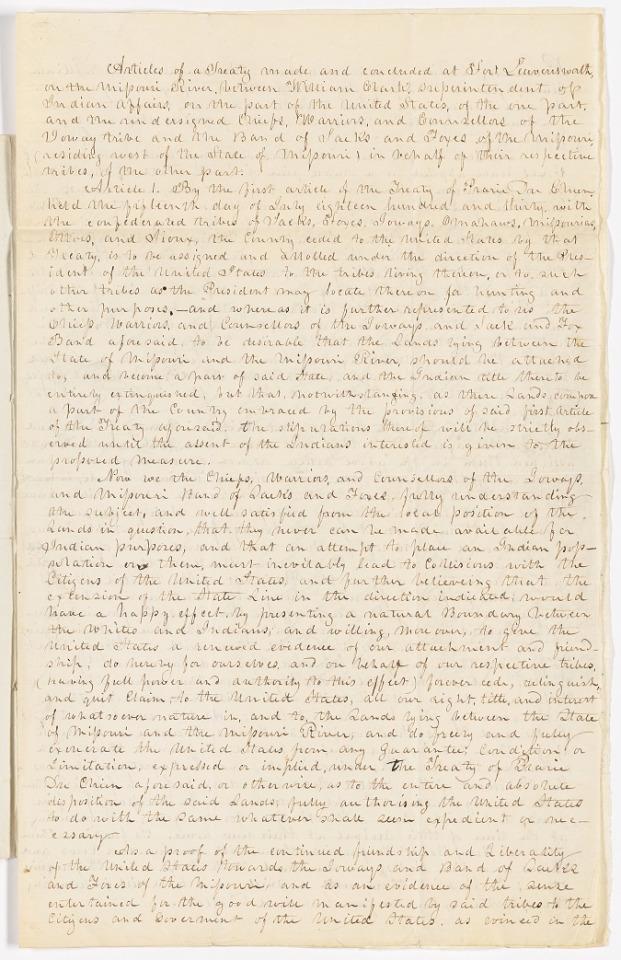 Articles of a Treaty made and concluded at Fort Leavensworth,
on the Missouri River, between William Clark, Superintendent of
Indian Affairs, on the part of the United States, of the one part,
and the undersigned Chiefs, Warriors, and Counsellors of the
Ioway tribe and the Band of Sacks and Foxes of the Missouri,
(residing west of the State of Missouri) in behalf of their respective
tribes, of the other part.
Article 1. By the first article of the Treaty of Prairie Du Chien,
held the fifteenth day of July eighteen hundred and thirty, with
the confederated tribes of Sacks, Foxes, Ioways, Omahaws, Missourias,
Ottoes, and Sioux, the Country ceded to the United States by that
Treaty, is to be assigned and allotted under the direction of the Pres-
ident of the United States to the tribes living thereon, or to such
other tribes as the President may locate thereon for hunting and
other purposes,—and whereas it is further represented to us the
Chiefs, Warriors, and Counsellors of the Ioways and Sack and Fox
Band aforesaid, to be desirable that the Lands lying between the
State of Missouri and the Missouri River, should be attached
to, and become a part of said State, and the Indian title thereto be
entirely extinguished; but that, notwithstanding, as these Lands compose
a part of the Country embraced by the provisions of said first article
of the Treaty aforesaid, the stipulations thereof will be strictly obs-
erved until the assent of the Indians interested is given to the
proposed measure.
Now we the Chiefs, Warriors, and Counsellors of the Ioways,
and Missouri Band of Sacks and Foxes, fully understanding
the subject, and well satisfied from the local position of the
Lands in question, that they never can be made available for
Indian purposes, and that an attempt to place an Indian pop-
ulation on them, must inevitably lead to Collisions with the
Citizens of the United States; and further believing that the
extension of the State Line in the direction indicated, would
have a happy effect, by presenting a natural Boundary between
the Whites and Indians; and willing, moreover, to give the
United States a renewed evidence of our attachment and friend-
ship, do hereby for ourselves, and on behalf of our respective tribes,
(having full power and authority to this effect) forever cede, relinquish,
and quit Claim, to the United States, all our right, title, and interest
of whatsoever nature in, and to, the Lands lying between the State
of Missouri and the Missouri River; and do freely and fully
exonerate the United States from any Guarantee; Condition or
Limitation, expressed or implied, under the Treaty of Prairie
Du Chien aforesaid, or otherwise, as to the entire and absolute
disposition of the said Lands, fully authorising the United States
to do with the same whatever shall seem expedient or nec-
essary.
As a proof of the continued friendship and Liberality
of the United States towards the Ioways and Band of Sacks
and Foxes of the Missouri, and as an evidence of the sense
entertained for the good will manifested by said tribes to the
Citizens and Goverment of the United States, as evinced in the